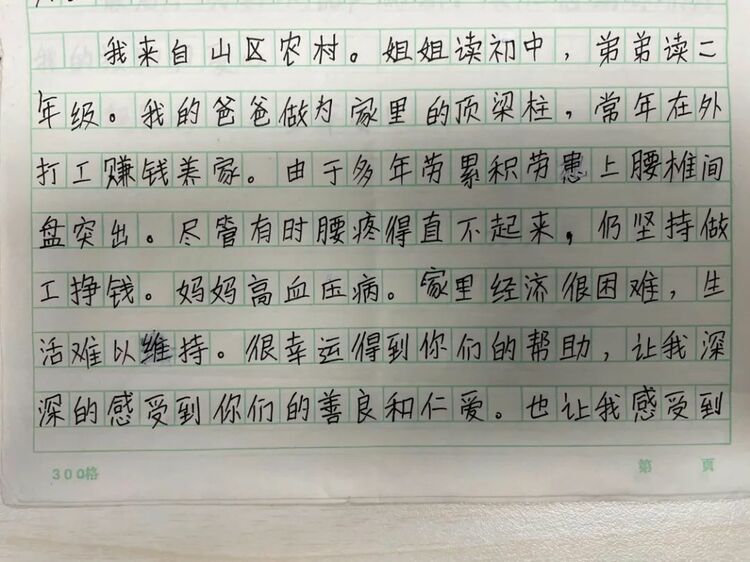 我来自山区农村。姐姐读初中，弟弟读二
年级。我的爸爸做为家里的顶梁柱，常年在外
打工赚钱养家。由于多年劳累积劳患上腰椎间
盘突出。尽管有时腰疼得直不起来，仍坚持做
工挣钱。妈妈高血压病。家里经济很困难，生
活难以维持。很幸运得到你们的帮助，让我深
深的感受到你们的善良和仁爱。也让我感受到
300格
第 页